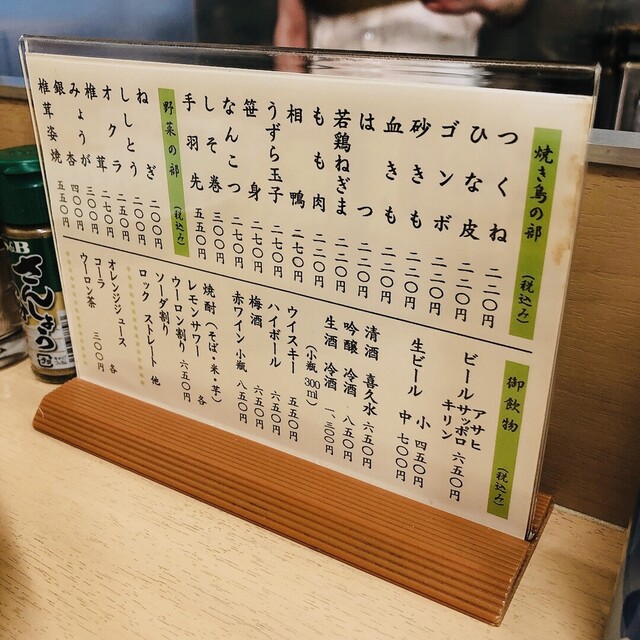 焼き鳥の部 (税込み)
つくね 二二〇円
ひな皮 二二〇円
ゴンボ 二二〇円
砂きも 二二〇円
血きも 二二〇円
はつ 二二〇円
若鶏ねぎま 二二〇円
もも肉 二二〇円
相鴨 二七〇円
うずら玉子 二七〇円
笹身 二七〇円
なんこつ 二七〇円
しそ巻 三〇〇円
手羽先 五五〇円
野菜の部 (税込み)
ねぎ 二〇〇円
ししとう 二五〇円
オクラ 二七〇円
椎茸 三〇〇円
みょうが 四〇〇円
銀杏
椎茸姿焼 五五〇円
御飲物 (税込み)
ビール アサヒ サッポロ キリン 六五〇円
生ビール 小 四五〇円
中 七〇〇円
清酒 喜久水 六五〇円
吟醸 冷酒 八五〇円
生酒 冷酒 一、三〇〇円
(小瓶 300ml)
ウイスキー 五五〇円
ハイボール 六五〇円
梅酒 六五〇円
赤ワイン小瓶 八五〇円
焼酎(そば・米・芋)
レモンサワー 各
ウーロン割り 六五〇円
ソーダ割り
ロック ストレート 他
オレンジジュース 各
コーラ 三〇〇円
ウーロン茶
S&B
さんしょう